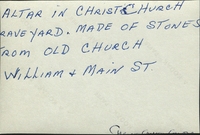 ALTAR IN CHRIST CHURCH
RAVEYARD. MADE OF STONES
FROM OLD CHURCH
WILLIAM & MAIN ST